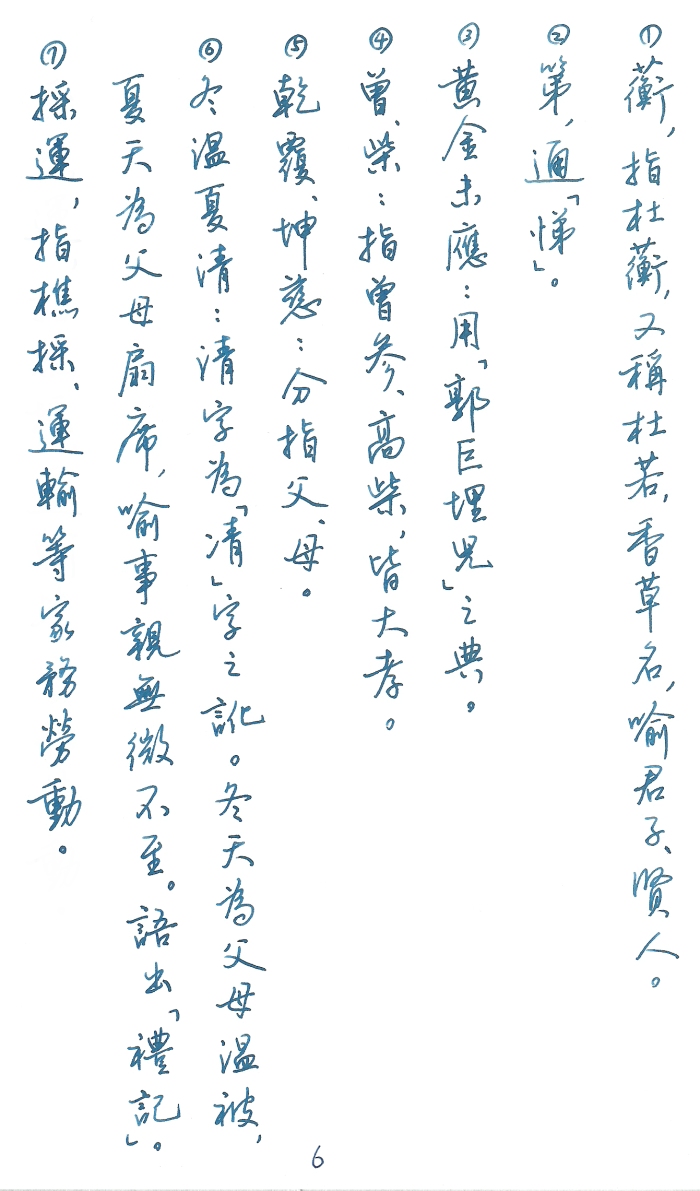 ①蘅，指杜蘅，又稱杜若，香草名，喻君子、賢人。
②第，通「悌」。
③黄金未應：用「郭巨埋児」之典。
④曾、柴：指曾参、高柴，皆大孝。
⑤乾覆、坤慈：分指父、母。
⑥冬温夏清：清字為「凊」字之訛。冬天為父母温被，
夏天為父母扇席，喻事親無微不至。語出「禮記」。
⑦採運，指樵採、運輸等家務勞動。
6